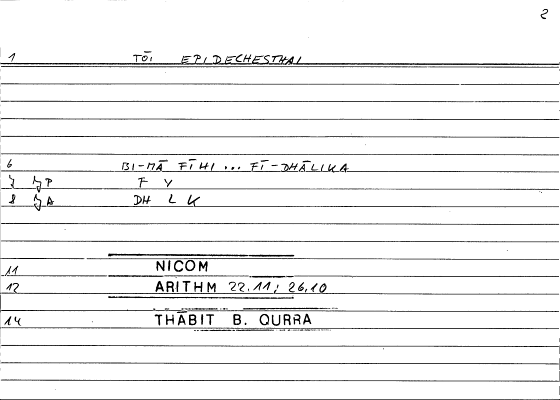 2
1 TŌI EPIDECHESTHAI
6 BI-MĀ FĪHI ... FĪ-DHĀLIKA
7 F Y
8 DH L K
11 NICOM
12 ARITHM 22.11; 26.10
14 THĀBIT B. QURRA